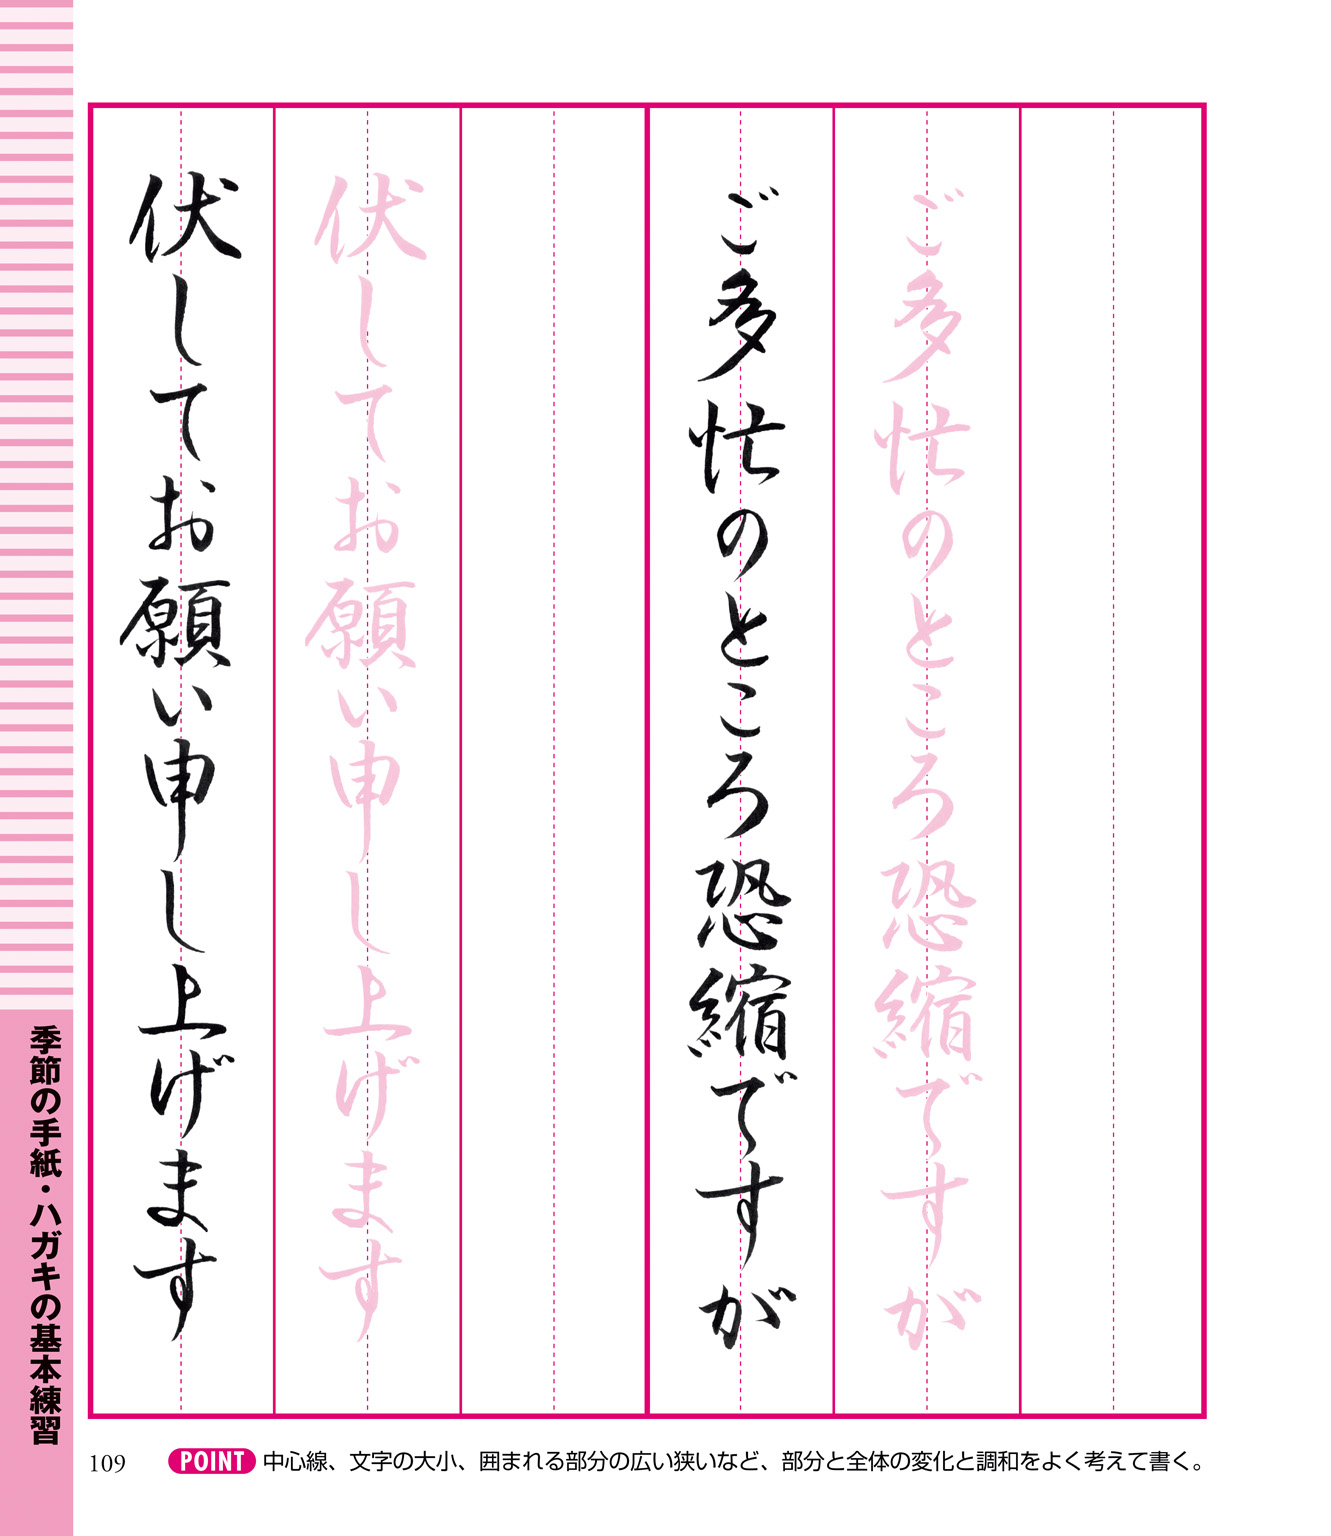 ご多忙のところ恐縮ですが
ご多忙のところ恐縮ですが
伏してお願い申し上げます
伏してお願い申し上げます
季節の手紙・ハガキの基本練習
109
POINT 中心線、文字の大小、囲まれる部分の広い狭いなど、部分と全体の変化と調和をよく考えて書く。